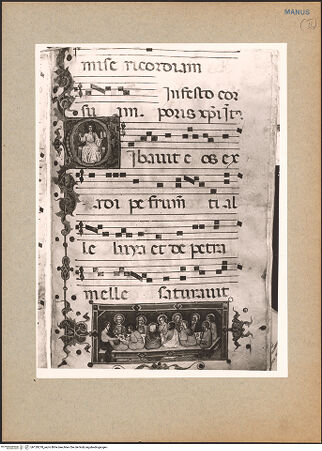 MANUS
mise ricordiam
In festo cor
su am. poris xpi Itr.
Cibavit e os ex
adi pe frum ti al
le luya et de petra
melle saturavit